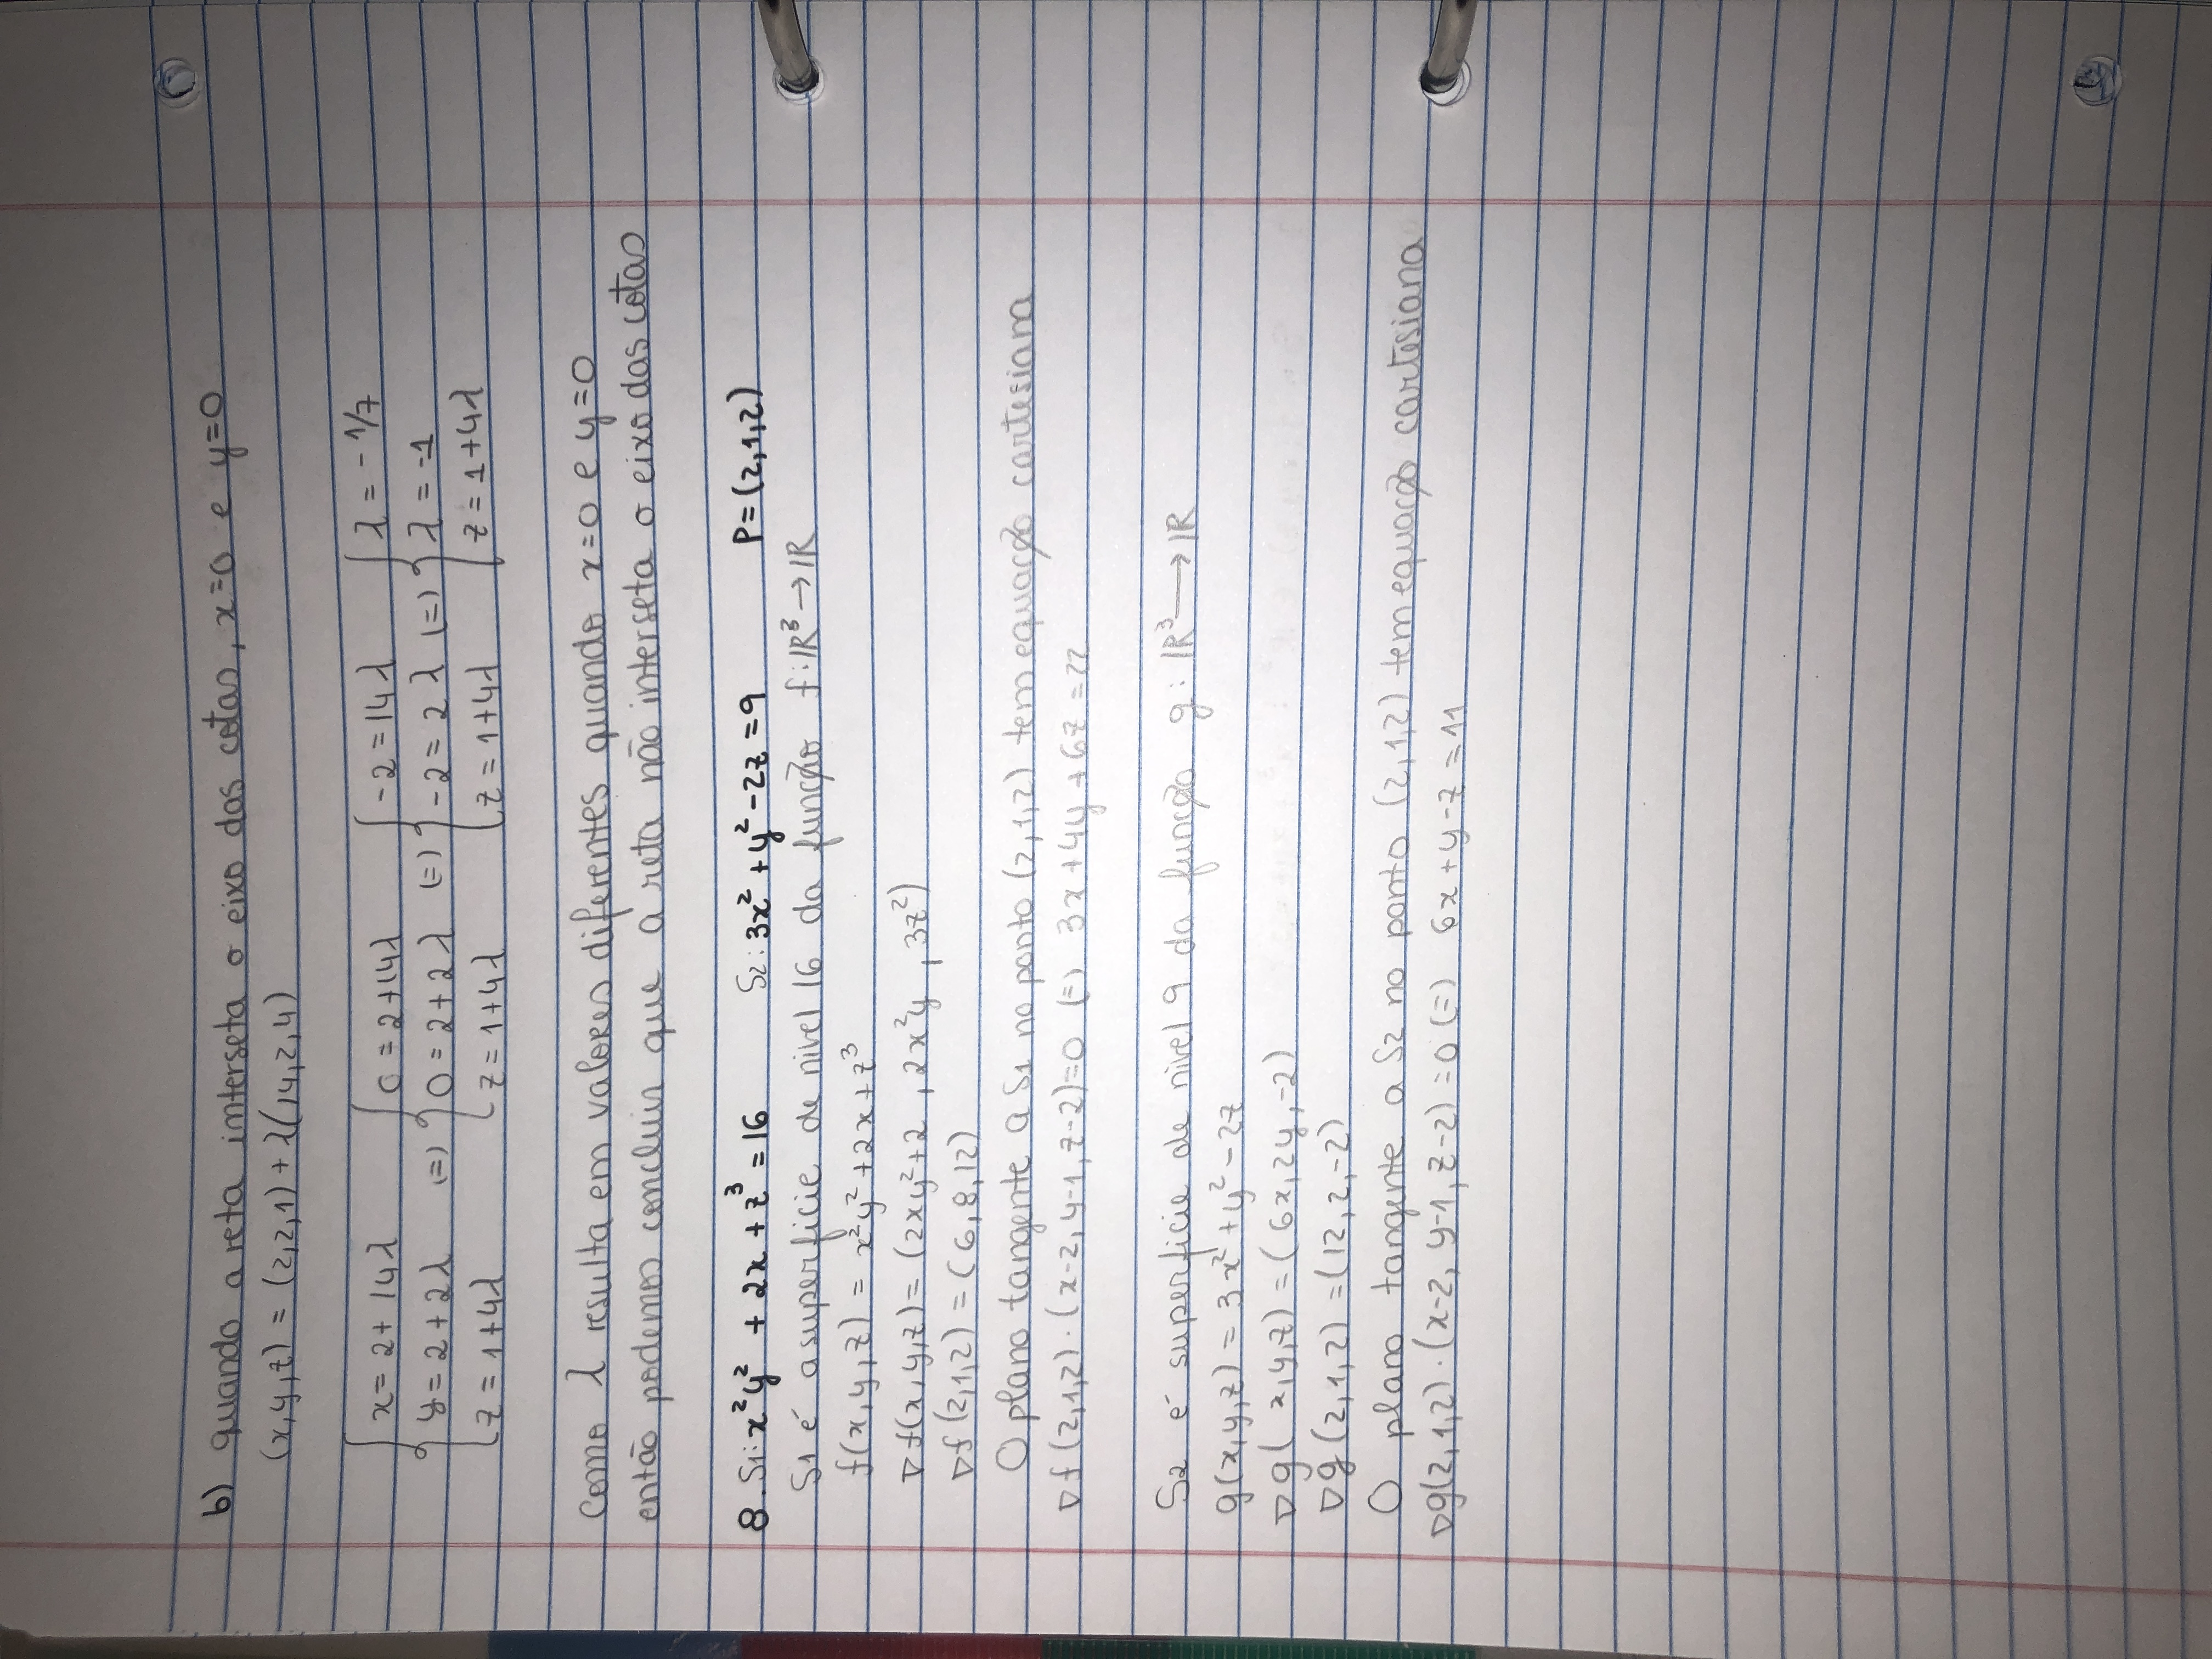 b) quando a reta interseta o eixo das cotas, x=0 e y=0
(x,y,z) = (2,2,1) + λ(14,2,4)
{ x = 2 + 14λ { 0 = 2+14λ { -2 = 14λ { λ = -1/7
{ y = 2 + 2λ (=) { 0 = 2 + 2λ (=) { -2 = 2λ (=) { λ = -1
{ z = 1+4λ { z = 1+4λ { z = 1+4λ { z = 1+4λ
Como λ resulta em valores diferentes quando x=0 e y=0
então podemos concluir que a reta não interseta o eixo das cotas
8. S1: x²y² + 2x + z³ = 16 S2: 3x² + y² - 2z = 9 P = (2,1,2)
S1 é a superficie de nivel 16 da função f: IR³ → IR
f(x,y,z) = x²y² + 2x + z³
∇f(x,y,z) = (2xy²+2, 2x²y, 3z²)
∇f(2,1,2) = (6,8,12)
O plano tangente a S1 no ponto (2,1,2) tem equação cartesiana
∇f(2,1,2)·(x-2, y-1, z-2)=0 (=) 3x+4y+6z = 22
S2 é superficie de nivel 9 da função g: IR³ → IR
g(x,y,z) = 3x² + y² - 2z
∇g(x,y,z) = (6x, 2y, -2)
∇g(2,1,2) = (12,2,-2)
O plano tangente a S2 no ponto (2,1,2) tem equação cartesiana
∇g(2,1,2)·(x-2, y-1, z-2) = 0 (=) 6x+y-z = 11